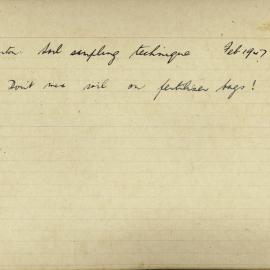 Soil sampling technique Feb 1947
Don't mix soil on fertiliser bags!